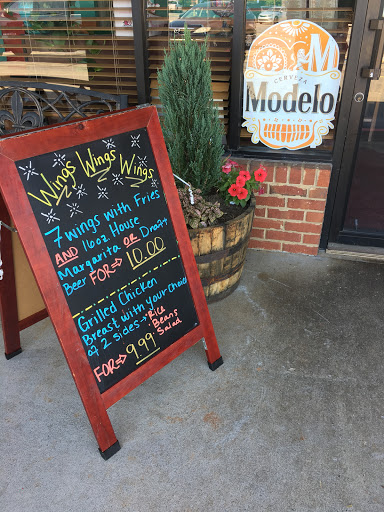 Wings Wings Wings
7 wings with Fries
AND 16oz House
Margarita OR Draft
Beer FOR⇒ 10.00
Grilled Chicken
Breast with your choice
of 2 sides→ • Rice
• Beans
Salad
FOR⇒ 9.99
M
CERVEZA
Modelo